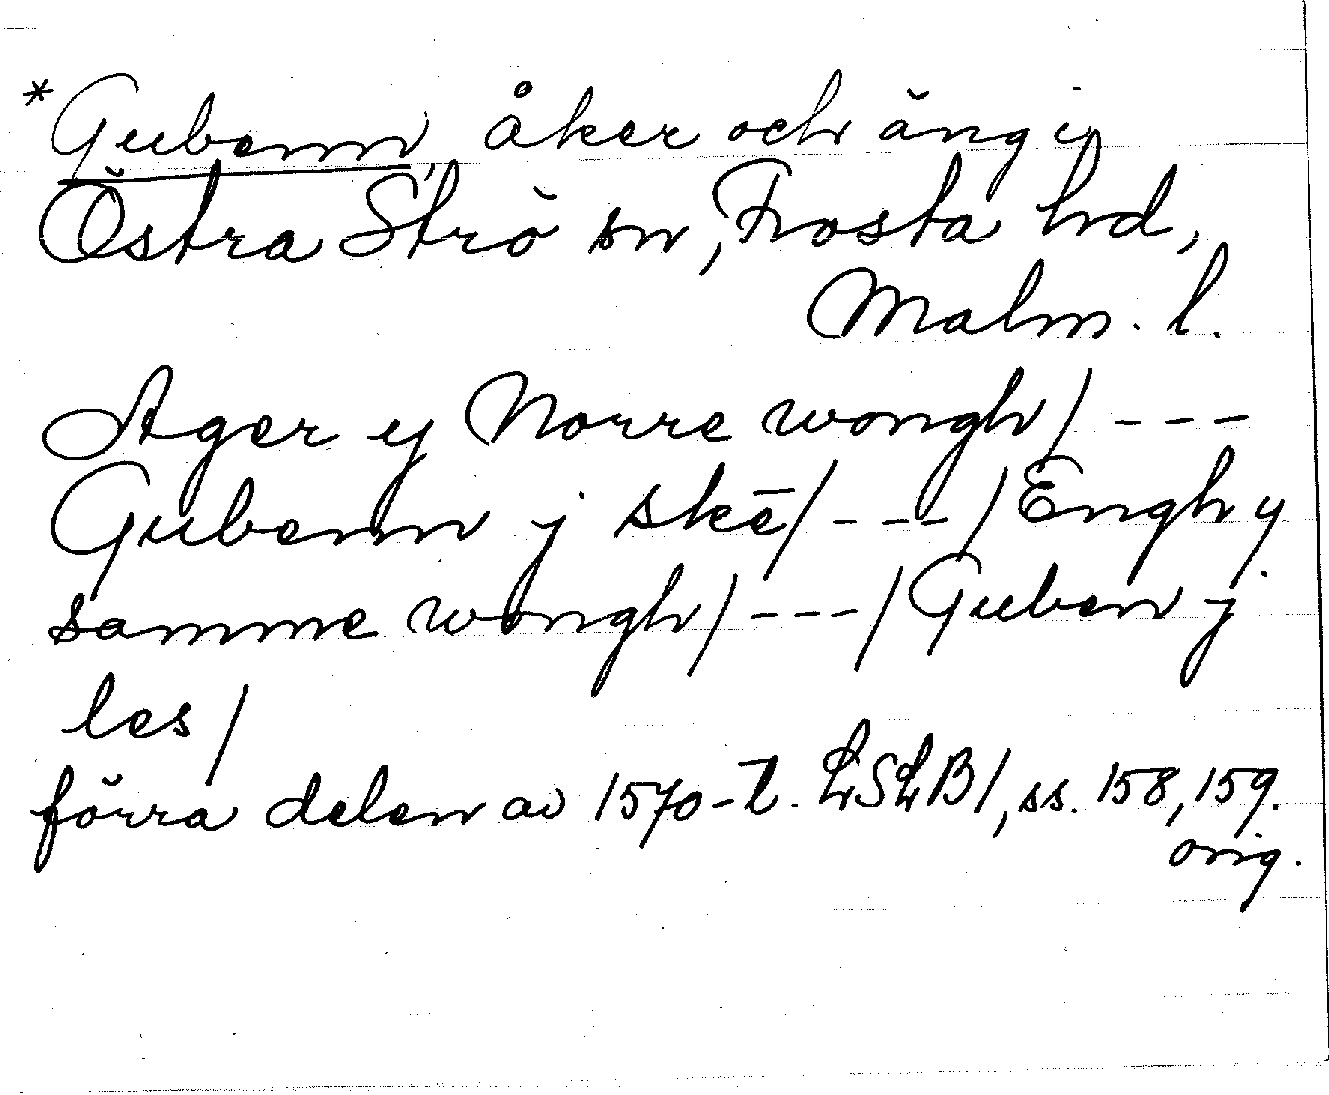 *Gubenn, åker och äng i
Östra Strö sn, Frosta hd,
Malm. l.
Ager y Norre wongh/ ---
Gubenn j skē/ --- /Engh y
samme wongh/ --- /Guben j
les/
förra delen av 1570-t. LSLB1, ss. 158, 159.
orig.